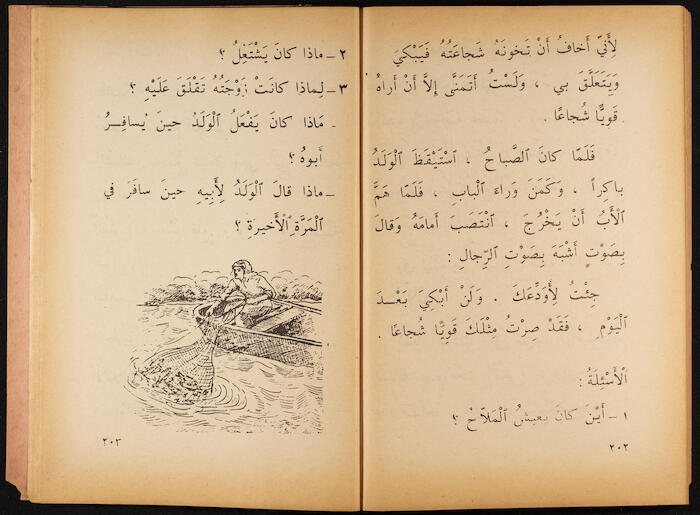 لِأَنِّي أَخافُ أَنْ تَخونَهُ شَجاعَتُهُ فَيَبْكِيَ
وَيَتَعَلَّقَ بي ، وَلَسْتُ أَتَمَنَّى إِلاَّ أَنْ أَراهُ
قَوِيًّا شُجاعًا .
فَلَمّا كانَ الصَّباحُ ، اسْتَيْقَظَ الْوَلَدُ
باكِراً ، وَكَمَنَ وَراءَ الْبابِ ، فَلَمّا هَمَّ
الْأَبُ أَنْ يَخْرُجَ ، انْتَصَبَ أَمامَهُ وَقالَ
بِصَوْتٍ أَشْبَهَ بِصَوْتِ الرِّجالِ :
جِئْتُ لِأُوَدِّعَكَ . وَلَنْ أَبْكِيَ بَعْدَ
الْيَوْمِ ، فَقَدْ صِرْتُ مِثْلَكَ قَوِيًّا شُجاعًا .
الْأَسْئِلَةُ :
١ - أَيْنَ كانَ يَعيشُ الْمَلاّحُ ؟
٢٠٢
٢ - ماذا كانَ يَشْتَغِلُ ؟
٣ - لِماذا كانَتْ زَوْجَتُهُ تَقْلَقُ عَلَيْهِ ؟
- مَاذا كانَ يَفْعَلُ الْوَلَدُ حينَ يُسافِرُ
أَبوهُ ؟
- ماذا قالَ الْوَلَدُ لِأَبيهِ حينَ سافَرَ في
الْمَرَّةِ الْأَخيرَةِ ؟
٢٠٣